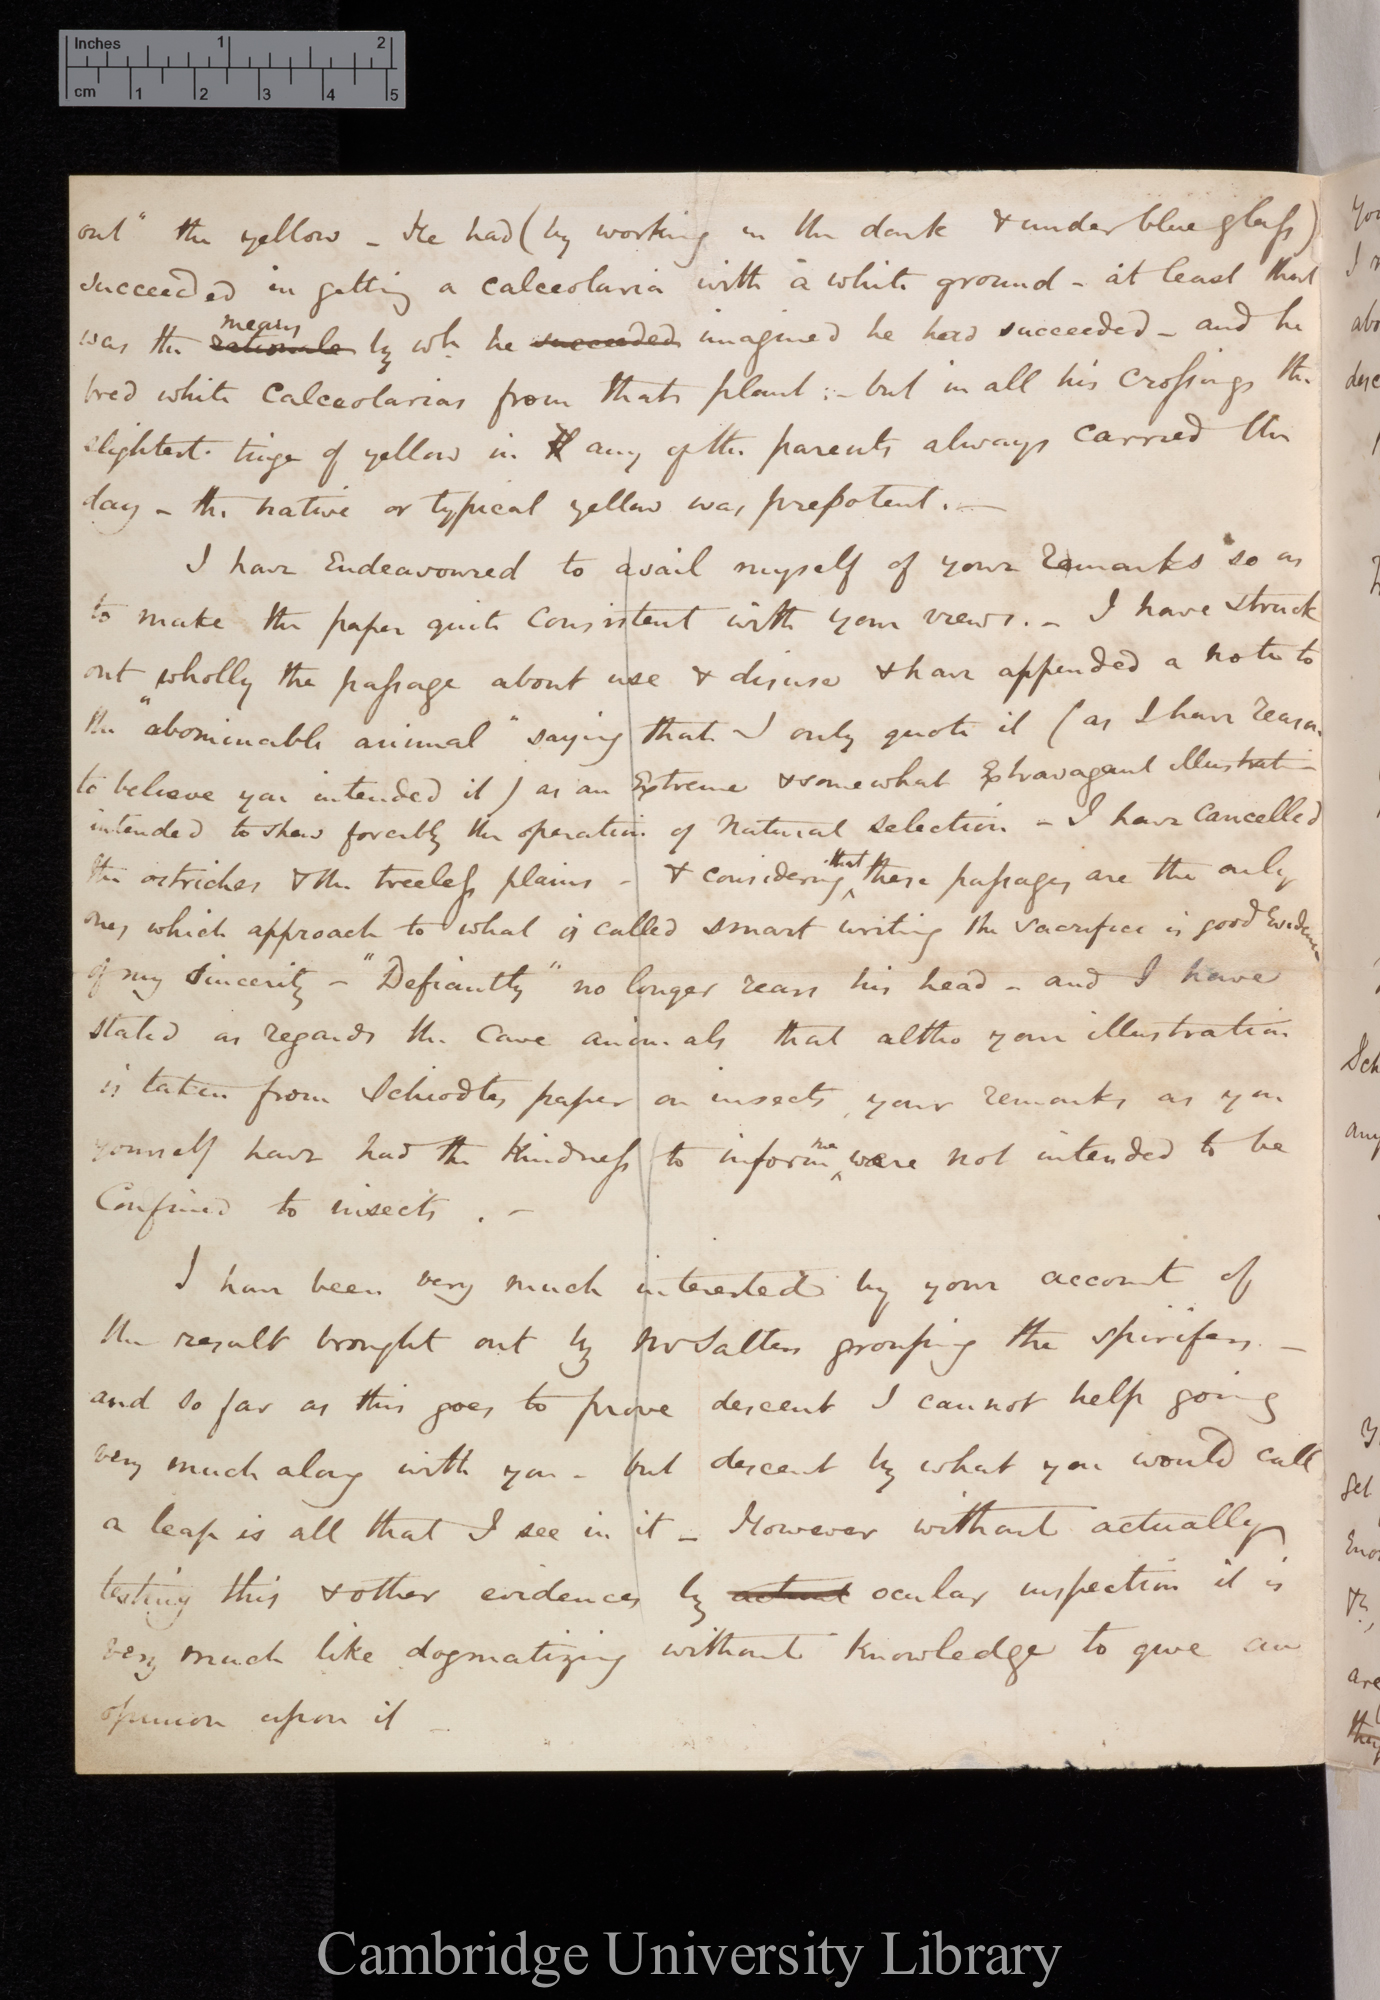 Inches 1 2
cm 1 2 3 4 5
out" the yellow – He had (by working in the dark & under blue glass)
succeeded in getting a calceolaria with a white ground – at least that
was the means rationale by wh. he succeeded imagined he had succeeded – and he
bred white Calceolarias from that plant :– but in all his crossings the
slightest tinge of yellow in any of the parents always carried the
day – the native or typical yellow was prepotent. —
I have Endeavoured to avail myself of your remarks so as
to make the paper quite consistent with your views. – I have struck
out wholly the passage about use & disuse & have appended a note to
the "abominable animal" saying that I only quote it (as I have reason
to believe you intended it) as an Extreme & somewhat Extravagant illustration
intended to shew forcibly the operation of Natural Selection – I have cancelled
the ostriches & the treeless plains – & considering that these passages are the only
ones which approach to what is called smart writing the sacrifice is good Evidence
of my Sincerity – "Defiantly" no longer rears his head – and I have
stated as regards the Cave animals that altho your illustration
is taken from Schiodtes paper on insects, your remarks as you
yourself have had the Kindness to inform me were not intended to be
Confined to insects . –
I have been very much interested by your account of
the result brought out by Mr Salters grouping the spirifers. –
and so far as this goes to prove descent I cannot help going
very much along with you – but descent by what you would call
a leap is all that I see in it – However without actually
testing this & other evidences by actual ocular inspection it is
very much like dogmatizing without Knowledge to give an
opinion upon it –
Cambridge University Library